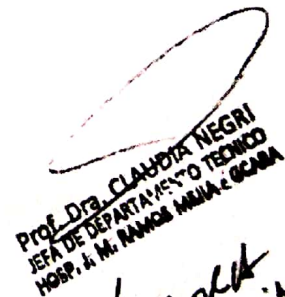 Prof. Dra. CLAUDIA NEGRI
JEFA DE DEPARTAMENTO TECNICO
HOSP. J. M. RAMOS MEJIA - GCABA